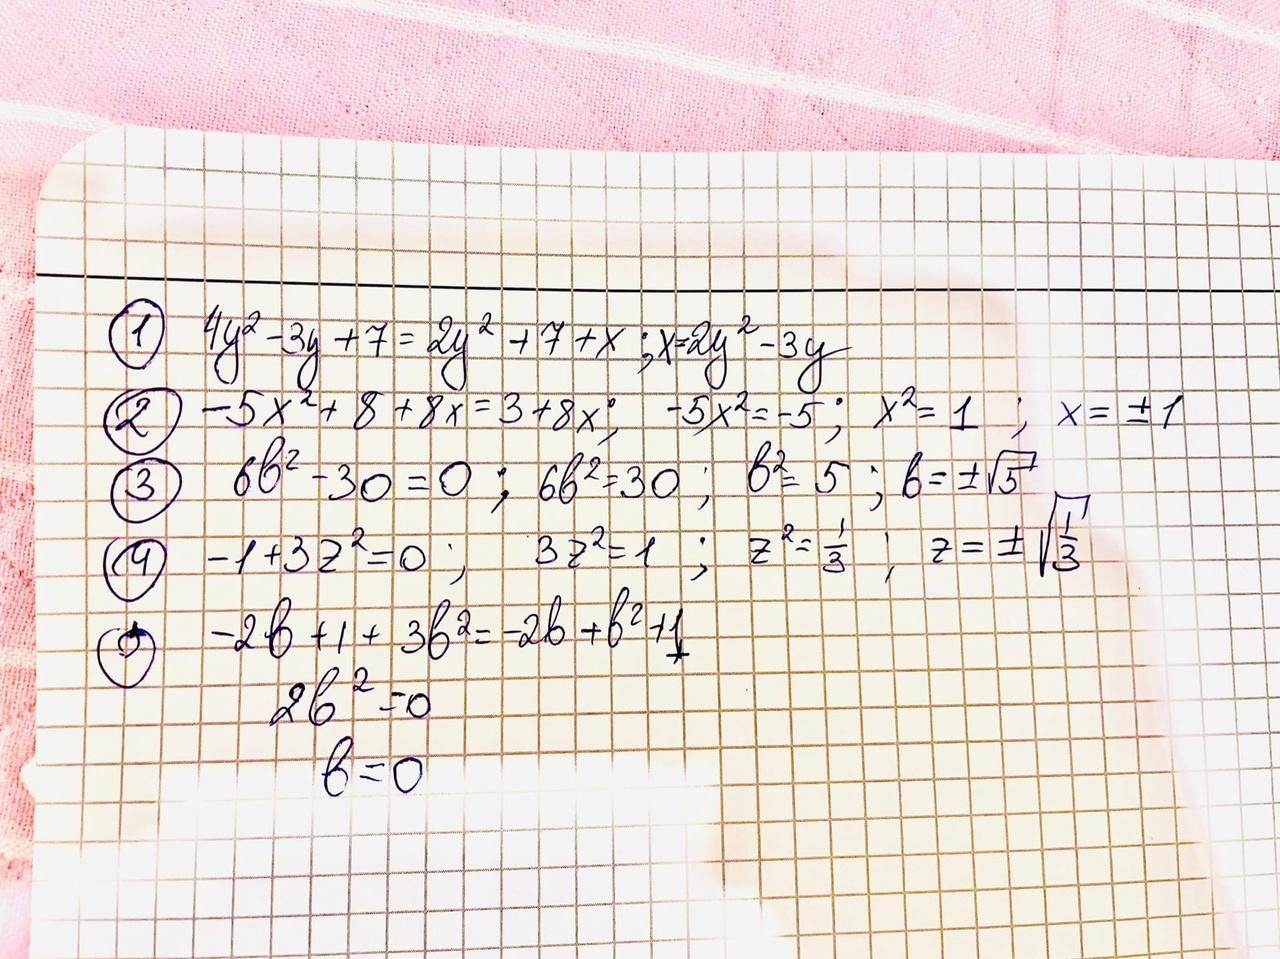 ① 4y² - 3y + 7 = 2y² + 7 + x ; x = 2y² - 3y
② -5x² + 8 + 8x = 3 + 8x ; -5x² = -5 ; x² = 1 ; x = ±1
③ 6b² - 30 = 0 ; 6b² = 30 ; b² = 5 ; b = ±√5
④ -1 + 3z² = 0 ; 3z² = 1 ; z² = 1/3 ; z = ±√1/3
-2b + 1 + 3b² = -2b + b² + 1
2b² = 0
b = 0